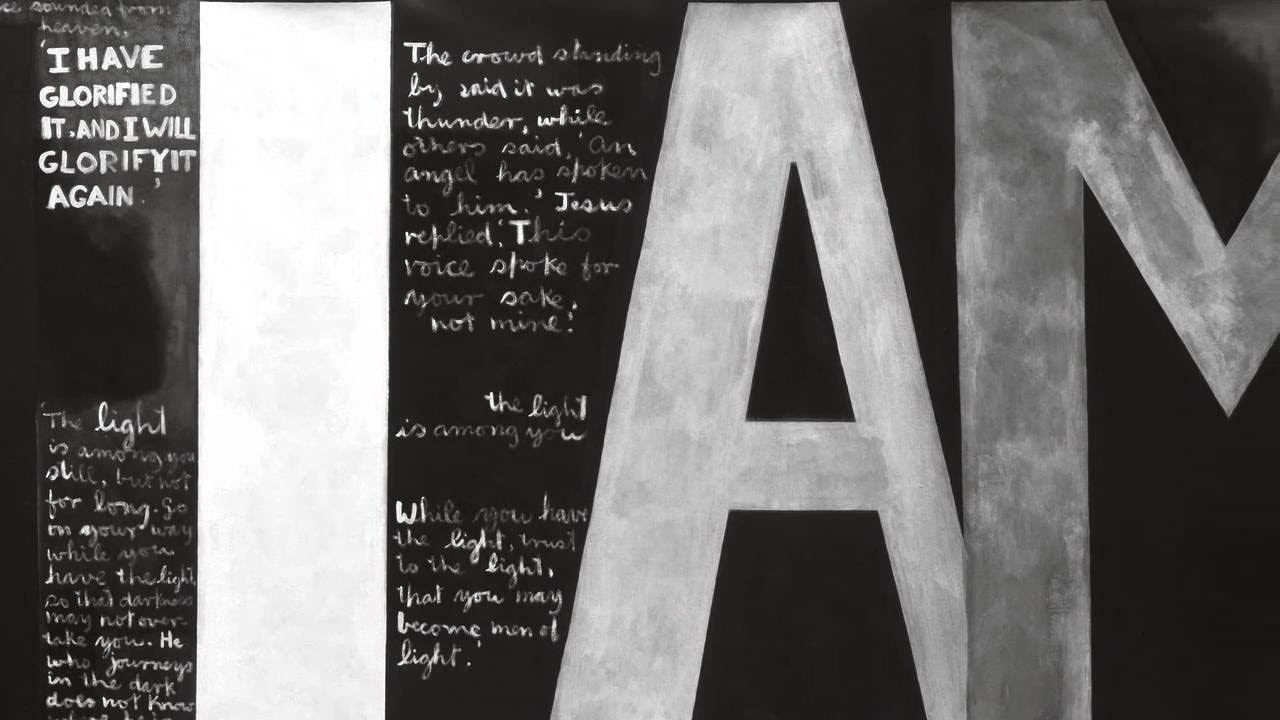 ce sounded from
heaven.
'I HAVE
GLORIFIED
IT. AND I WILL
GLORIFY IT
AGAIN.'
'The light
is among you
still, but not
for long. Go
on your way
while you
have the light
so that darkness
may not over-
take you. He
who journeys
in the dark
does not know
where he is
The crowd standing
by said it was
thunder, while
others said, 'An
angel has spoken
to him.' Jesus
replied, 'This
voice spoke for
your sake,
not mine.'
the light
is among you
While you have
the light, trust
to the light,
that you may
become men of
light.'
I AM